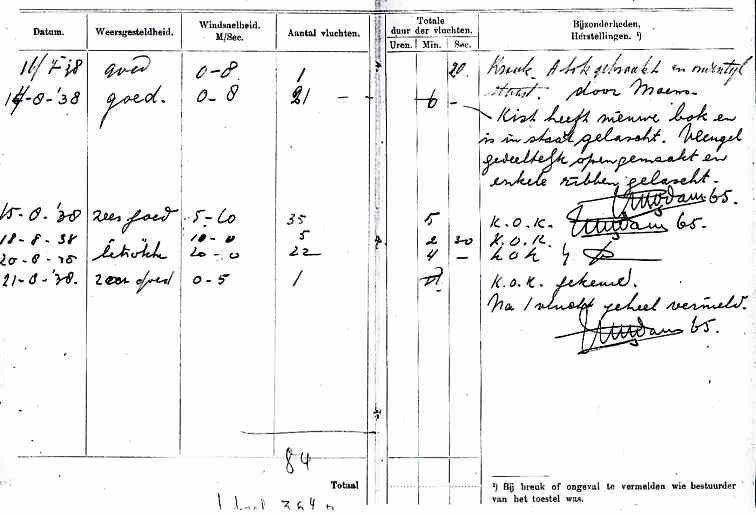 Datum. Weersgesteldheid. Windsnelheid. M/Sec. Aantal vluchten. Totale duur der vluchten. Uren. Min. Sec. Bijzonderheden, Herstellingen. ¹)
16/7-38 goed 0-8 1 20 Kreuk. A bok gebraakt en
door Moens.
14-8-'38 goed. 0-8 21 - - 6 -
Kist heeft nieuwe bok en
is in staal gelascht. Vleugel
gedeeltelijk opengemaakt en
enkele ribben gelascht.
65.
15-8-'38 zeer goed 5-10 35 5 K.O.K. 65.
18-8-38 10-0 5 2 30 K.O.K.
20-8-38 betrokk 20-0 22 4 - K O K
21-8-'38. zeer goed 0-5 1 K.O.K. gekeurd.
Na 1 vlucht geheel vernield.
65.
84
Totaal
¹) Bij breuk of ongeval te vermelden wie bestuurder
van het toestel was.